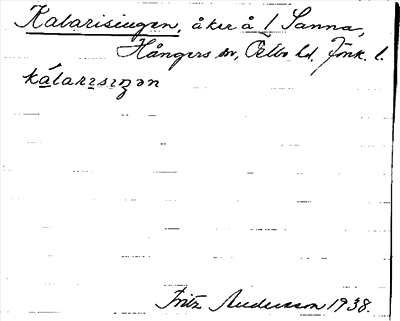 Kalarisingen, åker å 1 Sanna,
Hångers sn, Östbo hd. Jönk. l.
kálarɪsɪŋən
Fritz Andersson 1938.